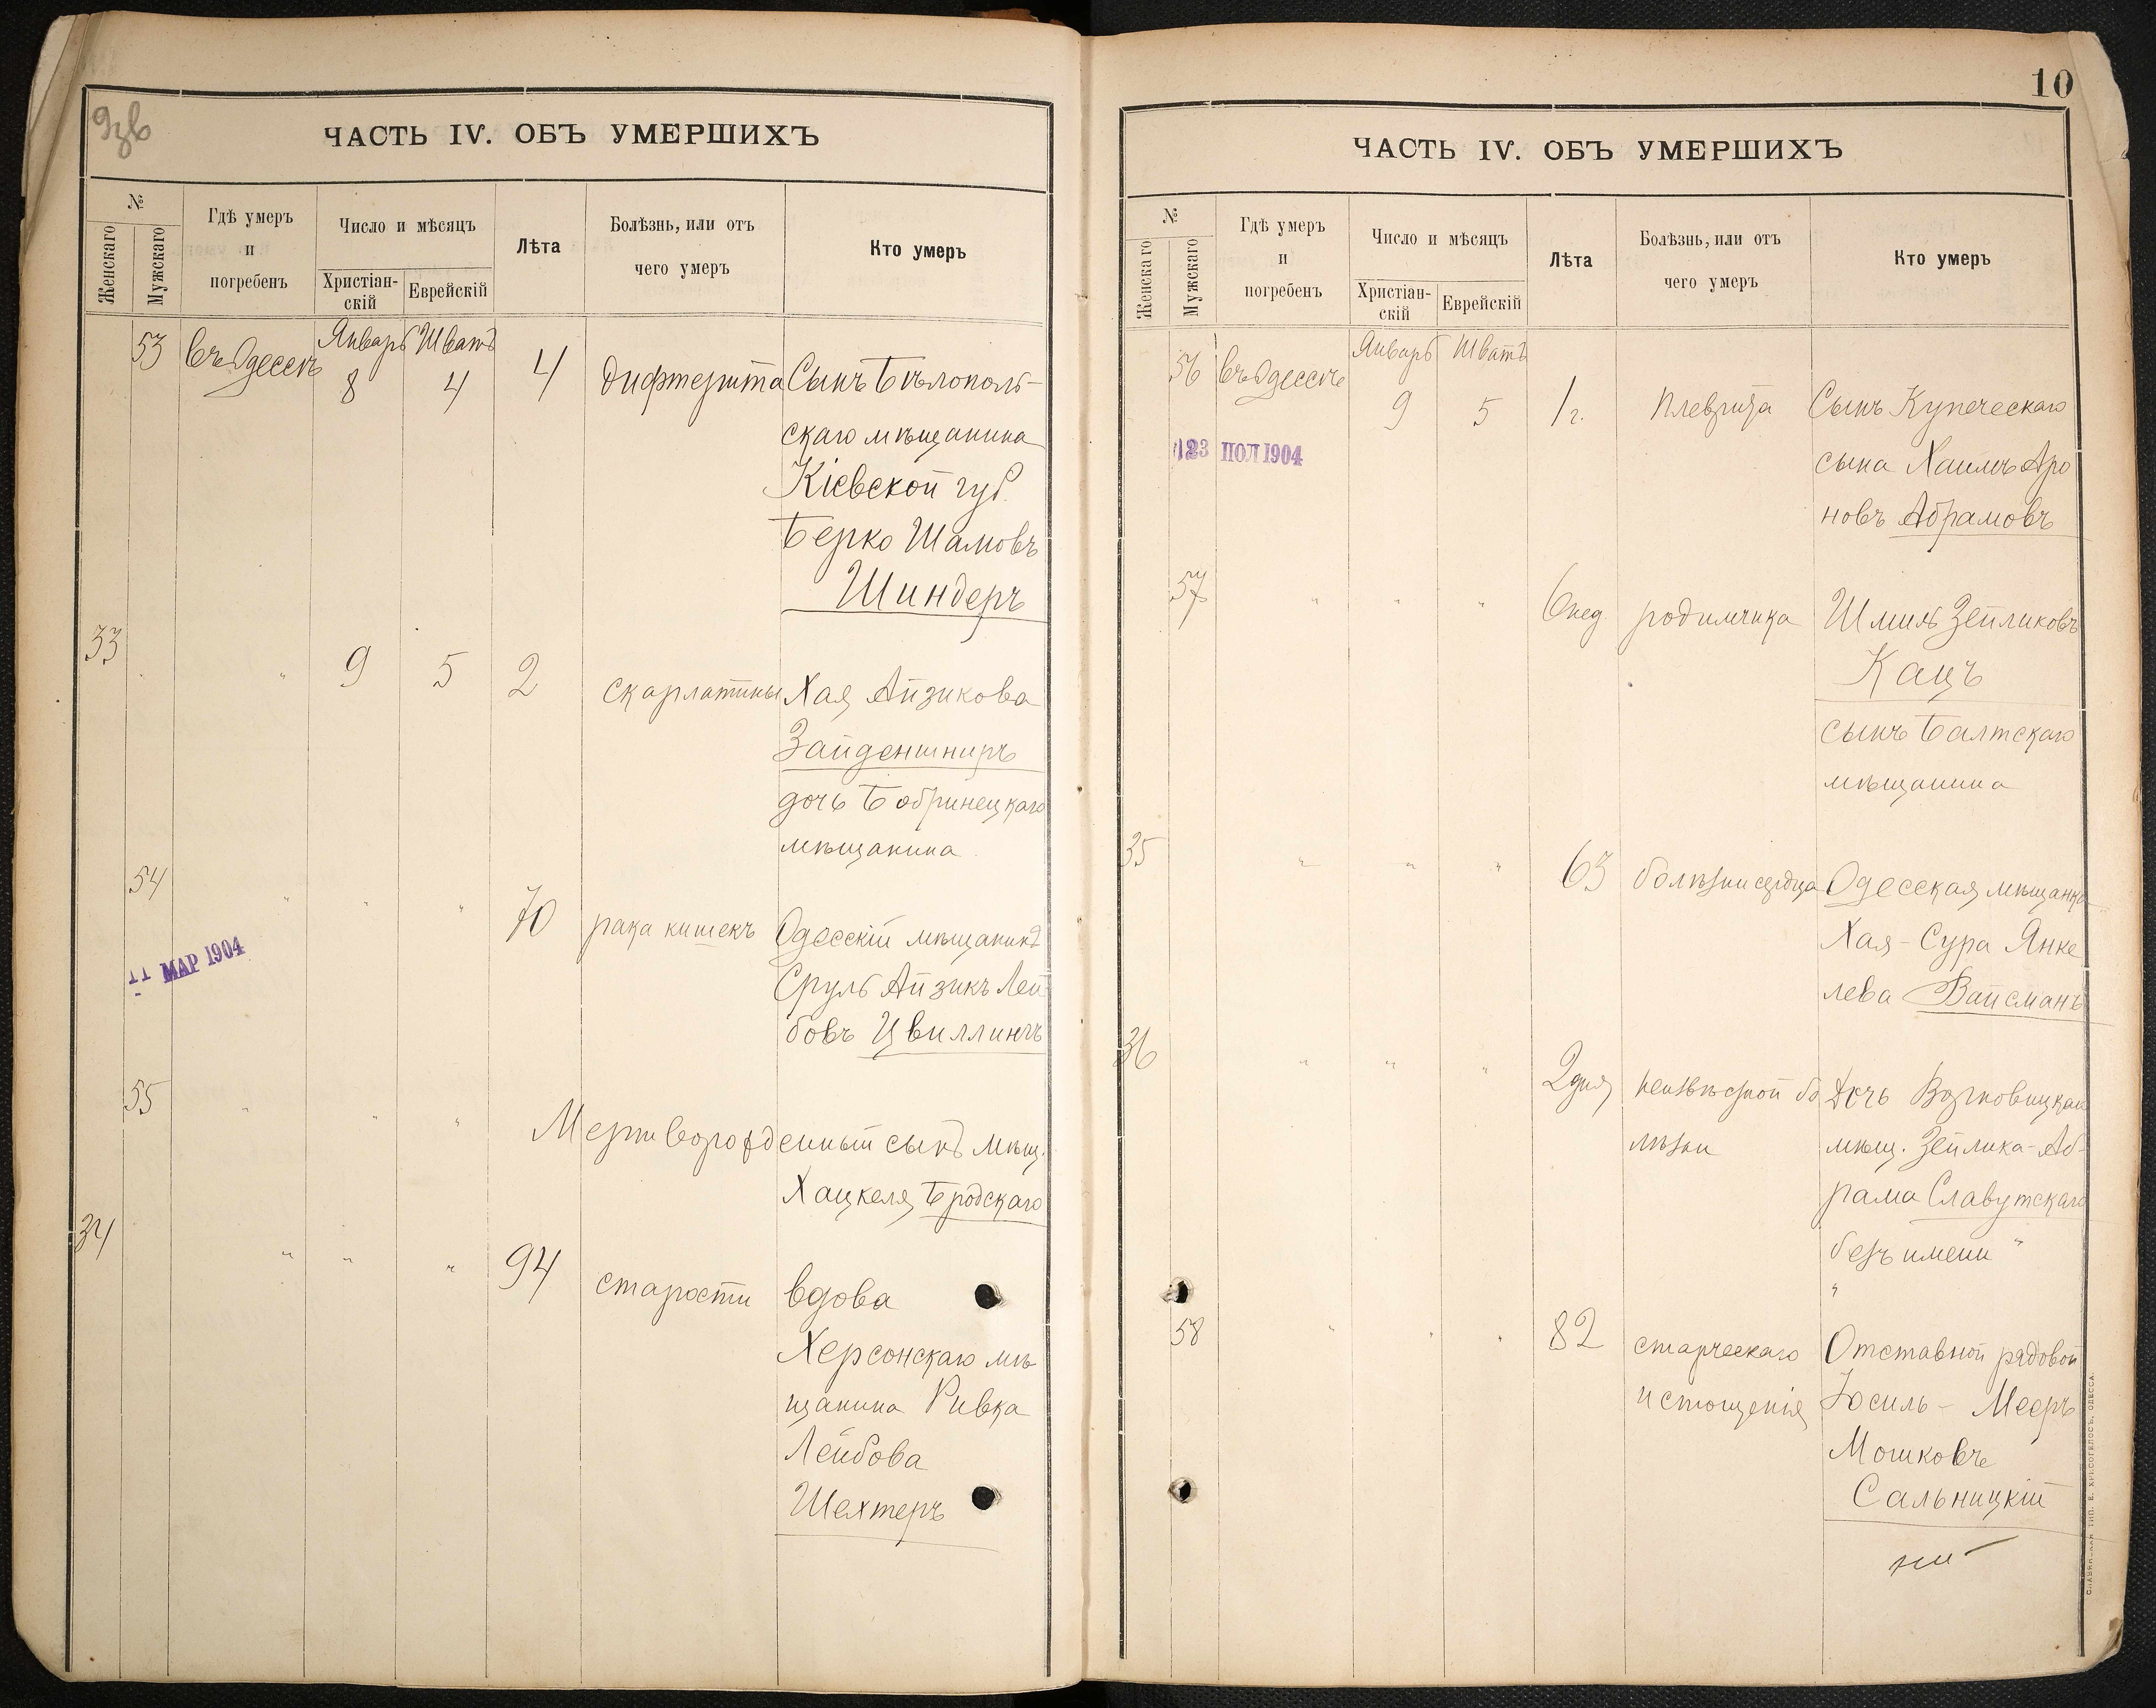 9зв
ЧАСТЬ IV. ОБЪ УМЕРШИХЪ
№
Женскаго
Мужскаго
Гдѣ умеръ
и
погребенъ
Число и мѣсяцъ
Христіан-
скій
Еврейскій
Лѣта
Болѣзнь, или отъ
чего умеръ
Кто умеръ
53 въ Одессѣ Январь 8 Шватъ 4 4 дифтерита Сынъ Бѣлополь-
скаго мѣщанина
Кіевской губ.
Берко Шамовъ
Шиндеръ
33 " " 9 5 2 скарлатины Хая Айзикова
Зайденшниръ
дочь Бобринецкаго
мѣщанина
54 " " " 70 рака кишекъ Одесскій мѣщанинъ
Сруль Айзикъ Лей
бовъ Цвиллингъ
11 МАР 1904
55 " " " Мертворожденный сынъ мѣщ.
Хацкеля Бродскаго
34 " " " 94 старости вдова
Херсонскаго мѣ
щанина Ривка
Лейбова
Шехтеръ
10
ЧАСТЬ IV. ОБЪ УМЕРШИХЪ
№
Женскаго
Мужскаго
Гдѣ умеръ
и
погребенъ
Число и мѣсяцъ
Христіан-
скій
Еврейскій
Лѣта
Болѣзнь, или отъ
чего умеръ
Кто умеръ
56 въ Одессѣ Январь 9 Шватъ 5 1 г. плеврита Сынъ Купеческаго
сына Хаимъ Аро
новъ Абрамовъ
23 ІЮЛ 1904
57 " " " 6 нед. родимчика Шмиль Зейликовъ
Кацъ
сынъ Балтскаго
мѣщанина
35 " " " 63 болѣзни сердца Одесская мѣщанка
Хая-Сура Янке
лева Вайсманъ
36 " " " 2 дня неизвѣстной бо Дочь
лѣзни мѣщ. Зейлика-Аб-
рама Славутскаго
безъ имени "
"
58 " " " 82 старческаго Отставной рядовой
истощенія Юсиль - Мееръ
Мошковъ
Сальницкій
СЛАВЯНСКАЯ ТИП. Е. ХРИСОГЕЛОСЪ, ОДЕССА.